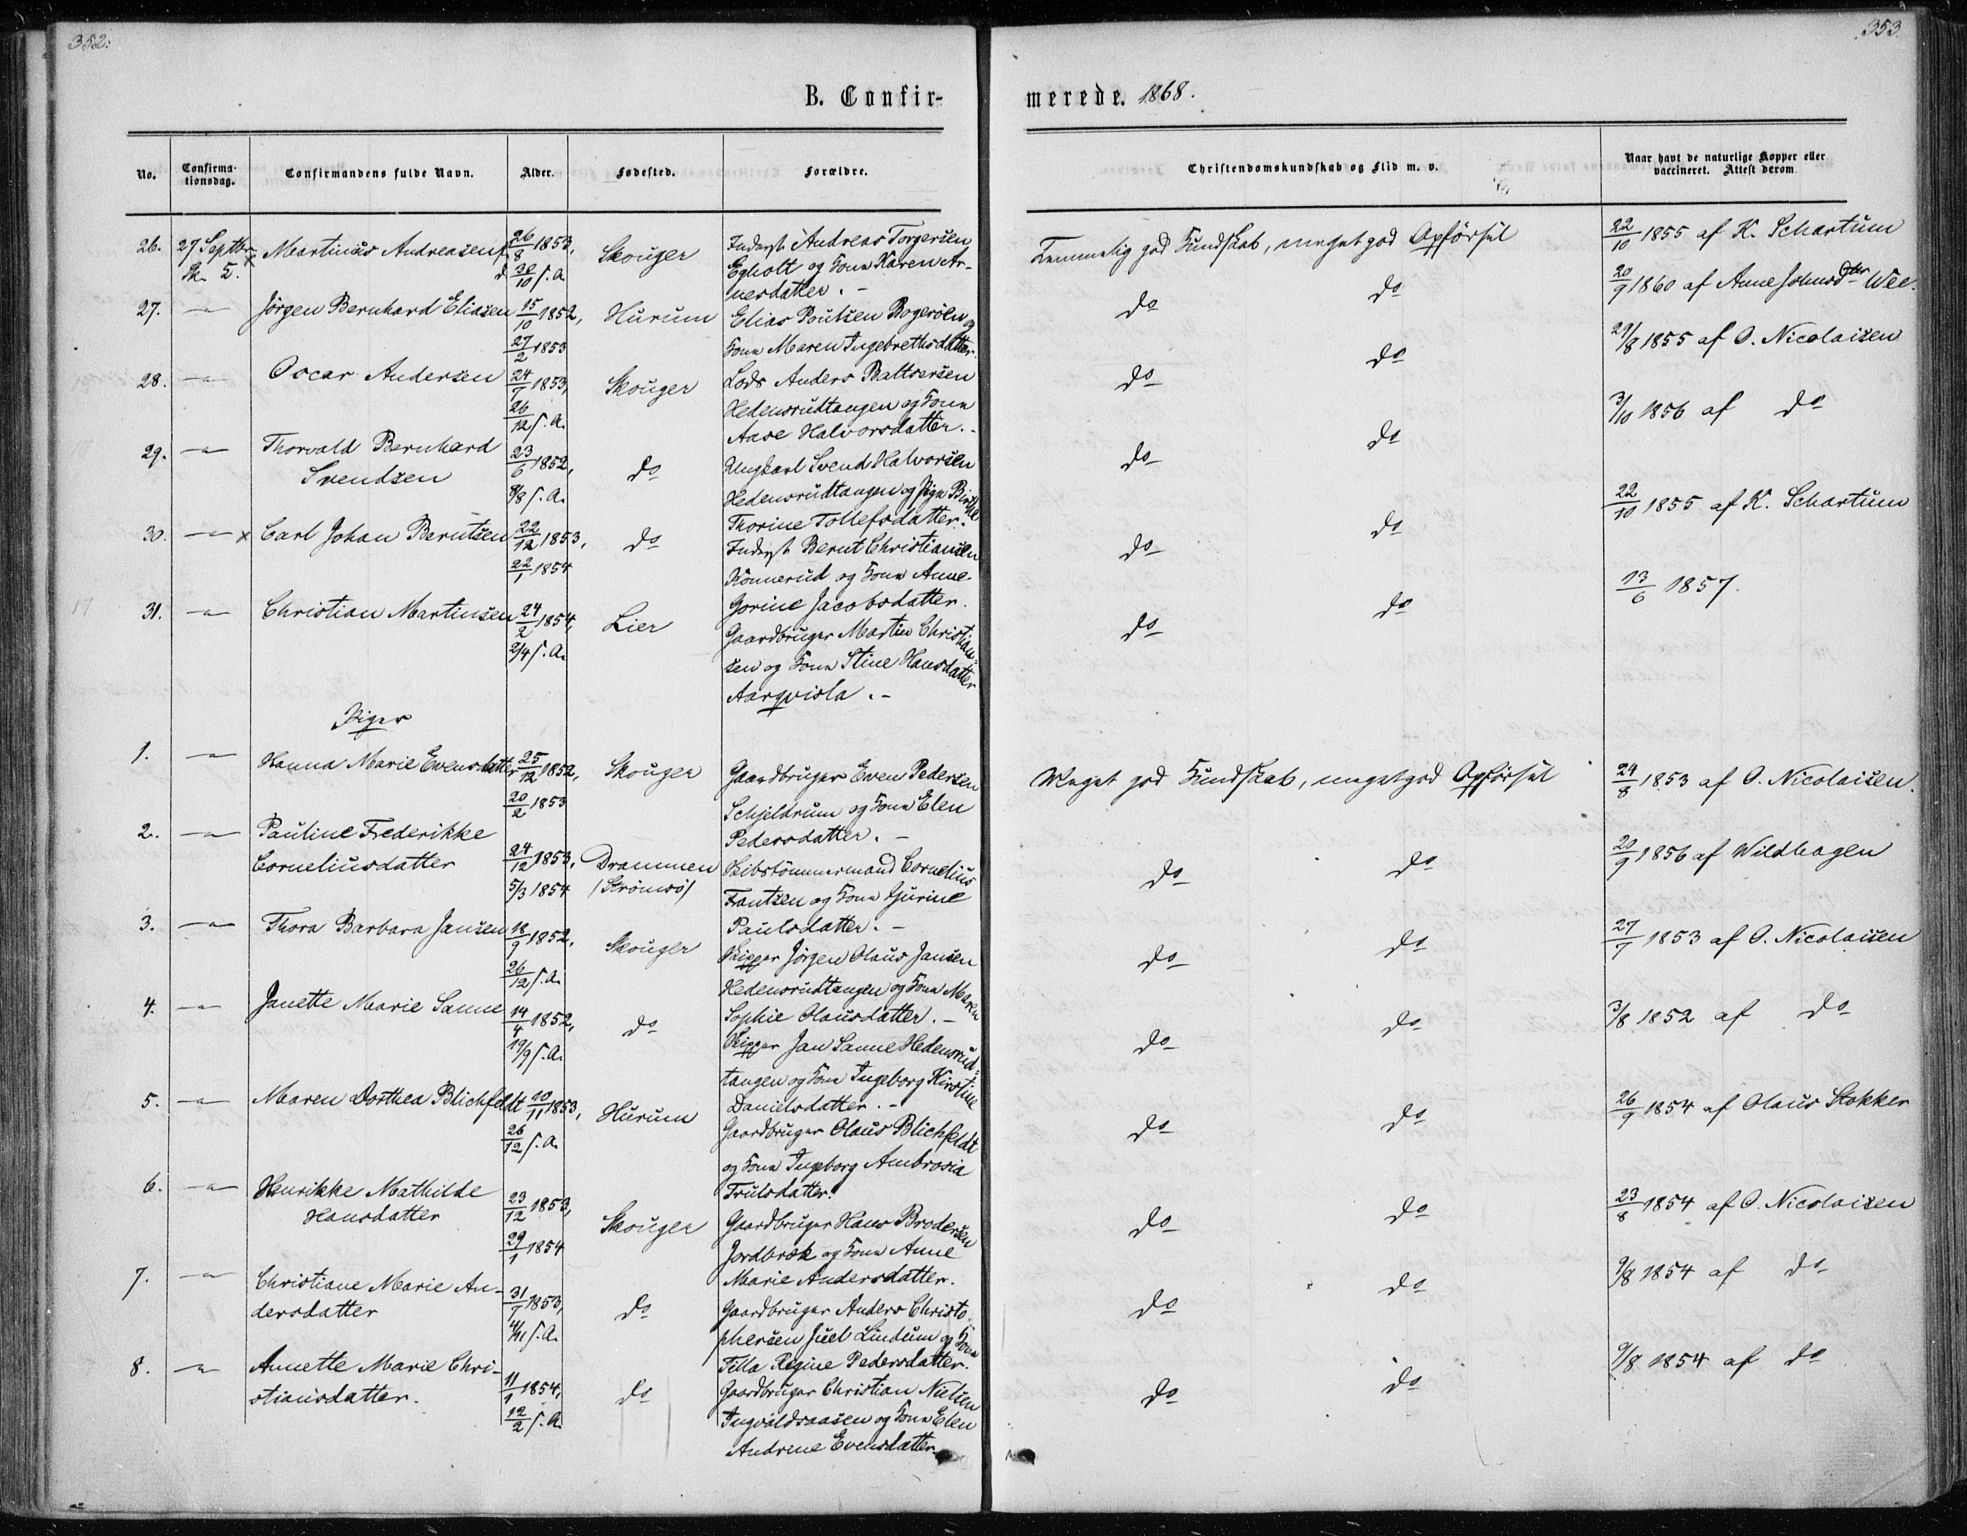 352.
353.
B. Confir-
merede. 1868.
No.
Confirma-
tionsdag.
Confirmandens fulde Navn.
Alder.
Fødested.
Forældre.
Christendomskundskab og Flid m. v.
Naar havt de naturlige Kopper eller
vaccineret. Attest derom
26. 27 Septbr Martinus Andreasen f. 26/8 1853, Skouger Inderst Andreas Torgersen Temmelig god Kundskab, meget god Opførsel 22/10 1855 af K. Schartum
d. 30/10 s.a. Egholt og Kone Karen Ar-
nesdatter. -
27. -"- Jørgen Bernhard Eliasen 15/10 1852, Hurum Elias Poulsen Bogerøen og do do 20/9 1860 af Anne Johnsdtr Wee.
27/2 1853 Kone Maren Ingebrethsdatter
28. -"- Oscar Andersen 24/7 1853, Skouger Lods Anders Baltsersen do do 29/8 1855 af O. Nicolaisen
26/12 s.a. Hedensrudtangen og Kone
Aase Halvorsdatter. -
29. -"- Thorvald Bernhard 23/6 1852, do Ungkarl Svend Halvorsen do do 3/10 1856 af do
Svendsen 8/8 s.a. Hedensrudtangen og Pige Birthe
Thorine Tollefsdatter.
30. -"- x Carl Johan Berntsen 22/12 1853, do Inderst Bernt Christiansen do do 22/10 1855 af K. Schartum
22/1 1854 Konnerud og Kone Anne
Gorine Jacobsdatter.
31. -"- Christian Martinsen 24/2 1854, Lier Gaardbruger Martin Christian- do do 13/6 1857.
2/4 s.a. sen og Kone Stine Hansdatter
Aarqvisla. -
Piger
1. -"- Hanna Marie Evensdatter 25/12 1852, Skouger Gaardbruger Even Pedersen Meget god Kundskab, meget god Opførsel 24/8 1853 af O. Nicolaisen.
20/2 1853 Schjeldrum og Kone Elen
Pedersdatter. -
2. -"- Pauline Frederikke
Corneliusdatter 24/12 1853, Drammen Skibstømmermand Cornelius do do 20/9 1856 af Wildhagen
5/3 1854 /Strømsø/ Frantsen og Kone Gurine
Paulsdatter. -
3. -"- Thora Barbara Jansen 18/9 1852, Skouger Skipper Jørgen Olaus Jansen do do 27/7 1853 af O. Nicolaisen
26/12 s.a. Hedensrudtangen og Kone Maren
Sophie Olausdatter. -
4. -"- Janette Marie Sanne 14/4 1852, do Skipper Jan Sanne Hedensrud- do do 3/8 1852 af do
19/9 s.a. tangen og Kone Ingeborg Kirstine
Danielsdatter. -
5. -"- Maren Dorthea Blichfeldt 10/11 1853, Hurum Gaardbruger Olaus Blichfeldt do do 26/9 1854 af Olaus Stokker
26/12 s.a. og Kone Ingeborg Ambrosia
Trulsdatter.
6. -"- Henrikke Mathilde
Hansdatter 23/12 1853, Skouger Gaardbruger Hans Brodersen do do 23/8 1854 af O. Nicolaisen
29/1 1854 Jordbræk og Kone Anne
Marie Andersdatter.
7. -"- Christiane Marie An-
dersdatter 31/7 1853, do Gaardbruger Anders Christo- do do 9/8 1854 af do
4/11 s.a. phersen Juel Lindum og Kone
Tilla Regine Pedersdatter.
8. -"- Annette Marie Chri-
stiansdatter. 11/1 1854, do Gaardbruger Christian Nielsen do do 9/8 1854 af do
12/2 s.a. Ingvaldsaasen og Kone Elen
Andrine Evensdatter